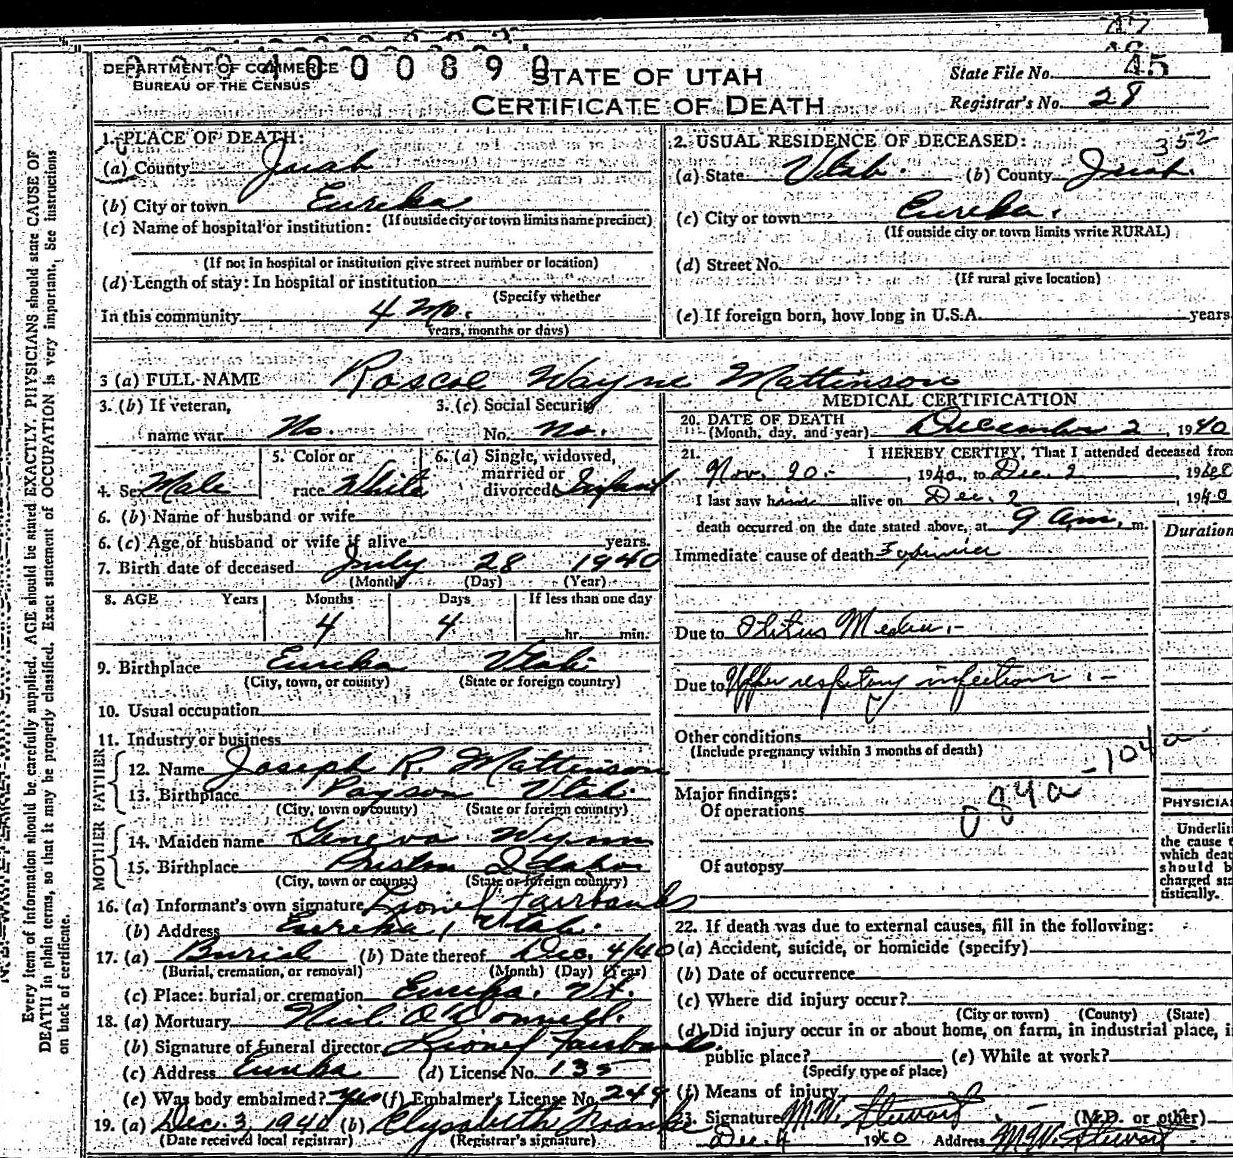 DEPARTMENT OF COMMERCE
BUREAU OF THE CENSUS
STATE OF UTAH
CERTIFICATE OF DEATH
State File No. 45
Registrar's No. 28
1. PLACE OF DEATH:
(a) County Juab
(b) City or town Eureka
(If outside city or town limits name precinct)
(c) Name of hospital or institution:
(If not in hospital or institution give street number or location)
(d) Length of stay: In hospital or institution
(Specify whether
In this community 4 Mo.
years, months or days)
2. USUAL RESIDENCE OF DECEASED: 352
(a) State Utah. (b) County Juab.
(c) City or town Eureka.
(If outside city or town limits write RURAL)
(d) Street No.
(If rural give location)
(e) If foreign born, how long in U.S.A. years
3 (a) FULL NAME Roscoe Wayne Mattinson
3. (b) If veteran, name war No.
3. (c) Social Security No. No.
4. Sex Male
5. Color or race White
6. (a) Single, widowed, married or divorced Infant
6. (b) Name of husband or wife
6. (c) Age of husband or wife if alive years.
7. Birth date of deceased July 28 1940
(Month) (Day) (Year)
8. AGE Years Months Days If less than one day
4 4 hr. min.
9. Birthplace Eureka Utah.
(City, town, or county) (State or foreign country)
10. Usual occupation
11. Industry or business
FATHER
12. Name Joseph R. Mattinson
13. Birthplace Payson Utah.
(City, town or county) (State or foreign country)
MOTHER
14. Maiden name Geneva Wynn
15. Birthplace Preston Idaho
(City, town or county) (State or foreign country)
16. (a) Informant's own signature Lionel Fairbanks
(b) Address Eureka, Utah.
17. (a) Burial (b) Date thereof Dec. 4/40
(Burial, cremation, or removal) (Month) (Day) (Year)
(c) Place: burial or cremation Eureka. Ut.
18. (a) Mortuary Neil O'Donnell.
(b) Signature of funeral director Lionel Fairbanks.
(c) Address Eureka (d) License No. 135
(e) Was body embalmed? Yes (f) Embalmer's License No. 249
19. (a) Dec. 3, 1940 (b) Elysabeth
(Date received local registrar) (Registrar's signature)
MEDICAL CERTIFICATION
20. DATE OF DEATH
(Month, day, and year) December 2, 1940
21. I HEREBY CERTIFY, That I attended deceased from
Nov. 20 - , 1940, to Dec. 2 1940
I last saw him alive on Dec. 2 1940
death occurred on the date stated above, at 9 am. m.
Duration
Immediate cause of death
Due to Otitus Media. -
Due to Upper respitory infection. -
Other conditions
(Include pregnancy within 3 months of death)
-104a
Major findings:
Of operations 084a
Of autopsy
PHYSICIA
Underli
the cause t
which deat
should b
charged sta
tistically.
22. If death was due to external causes, fill in the following:
(a) Accident, suicide, or homicide (specify)
(b) Date of occurrence
(c) Where did injury occur?
(City or town) (County) (State)
(d) Did injury occur in or about home, on farm, in industrial place, i
public place? (e) While at work?
(Specify type of place)
(f) Means of injury
23. Signature M.W. Stewart. - (M.D. or other)
Dec. 4 1940 Address M.W. Stewart
Every item of information should be carefully supplied. AGE should be stated EXACTLY. PHYSICIANS should state CAUSE OF
DEATH in plain terms, so that it may be properly classified. Exact statement of OCCUPATION is very important. See instructions
on back of certificate.